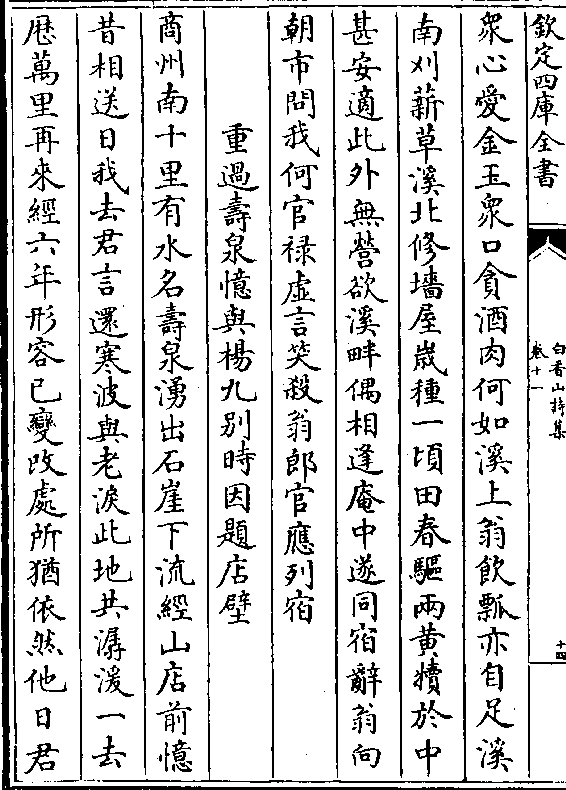 欽定四庫全書
白香山詩集
卷十一
十四
衆心愛金玉衆口貪酒肉何如溪上翁飲瓢亦自足溪
南刈薪草溪北修墻屋嵗種一頃田春驅兩黄犢於中
甚安適此外無營欲溪畔偶相逢庵中遂同宿辭翁向
朝市問我何官禄虚言笑殺翁郎官應列宿
重過壽泉憶與楊九别時因題店壁
商州南十里有水名壽泉湧出石崖下流經山店前憶
昔相送日我去君言還寒波與老淚此地共潺湲一去
厯萬里再來經六年形容已變改處所猶依然他日君